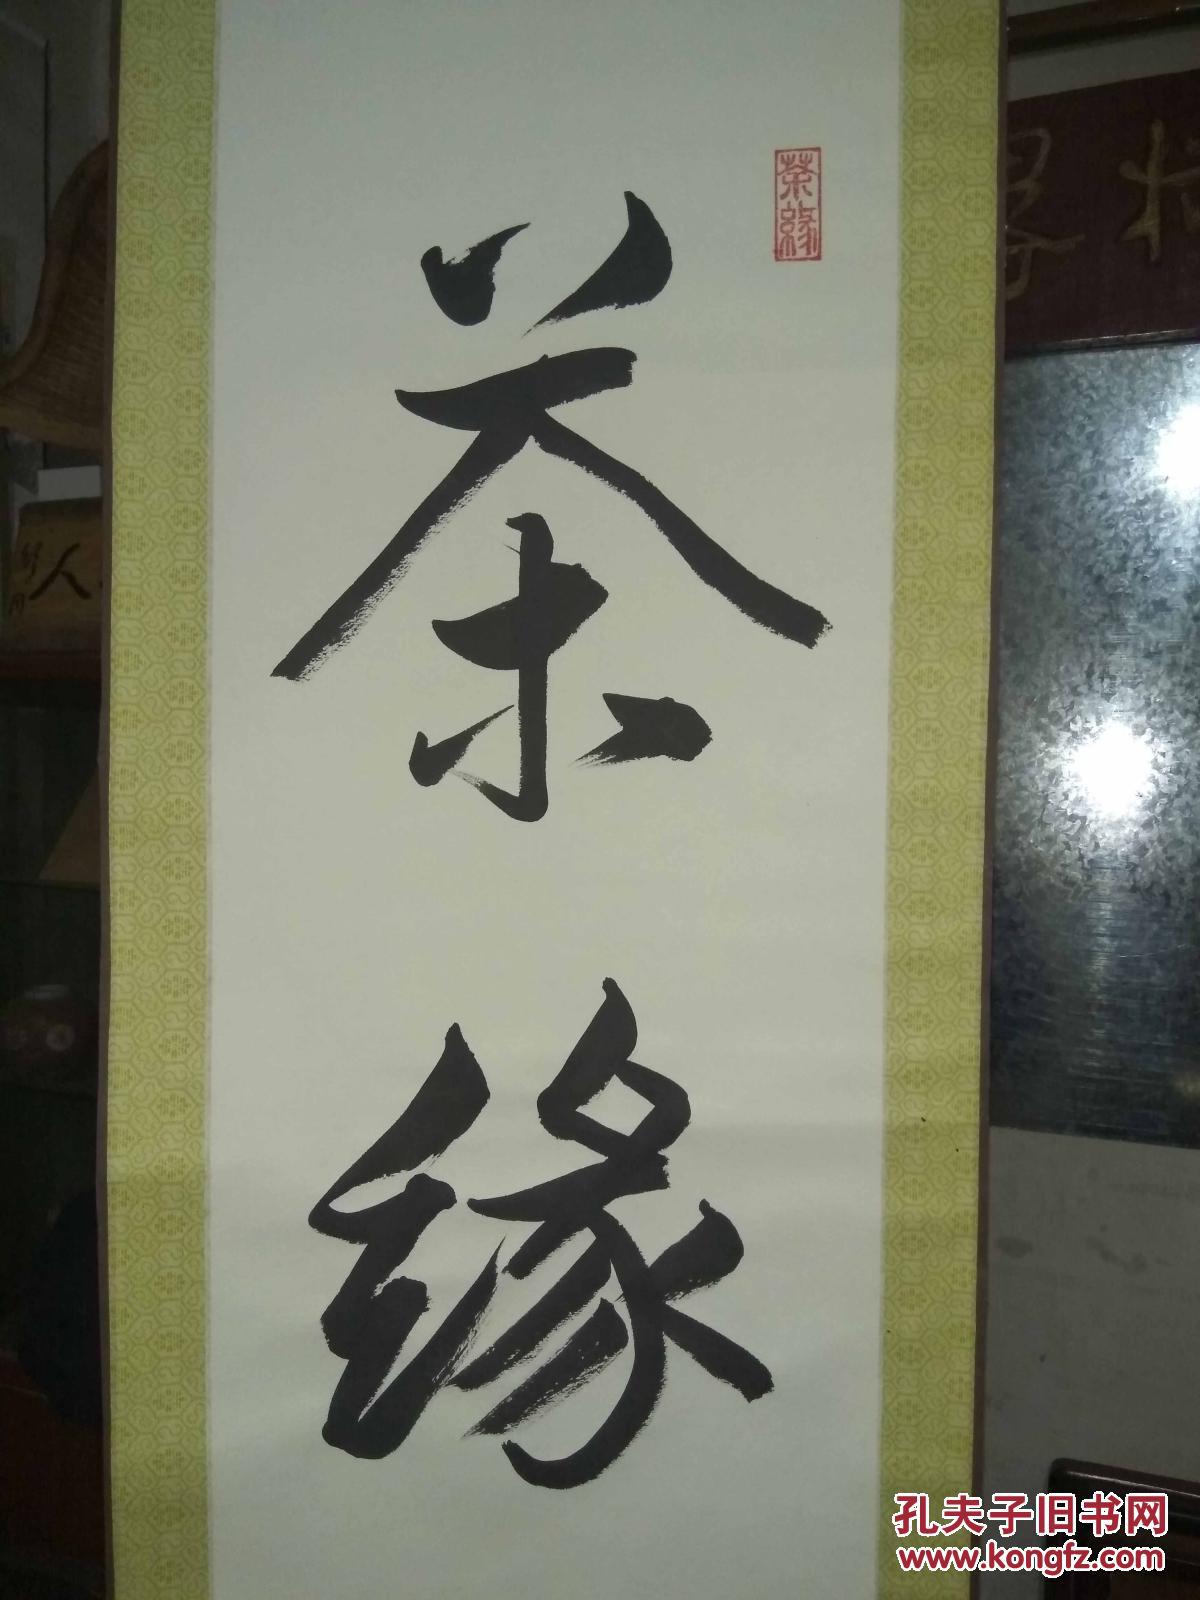 茶
缘
茶緣
人
孔夫子旧书网
www.kongfz.com